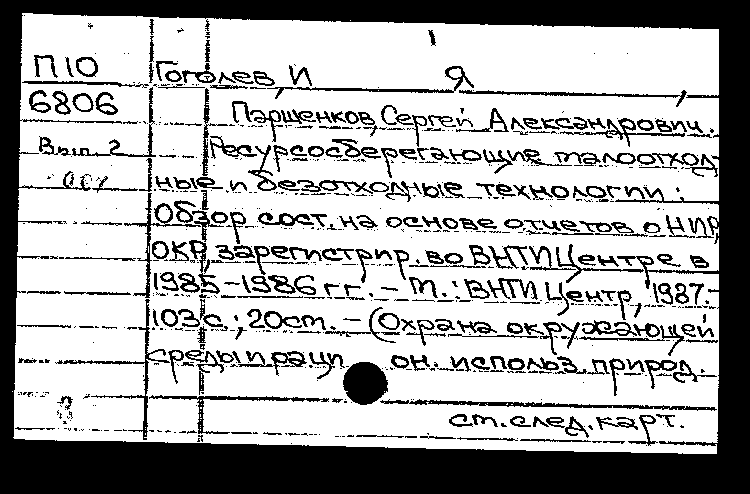 П10 Гоголев, И Я
6806 Паршенков, Сергей Александрович.
Вып. 2 Ресурсосберегающие малоотход-
ные и безотходные технологии:
Обзор сост. на основе отчетов о НИР,
ОКР, зарегистрир. во ВНТИЦентре в
1985-1986 гг. - М.: ВНТИЦентр, 1987.-
103 с.; 20 см. - (Охрана окружающей
среды и рацион. использ. природ.
8
см. след. карт.